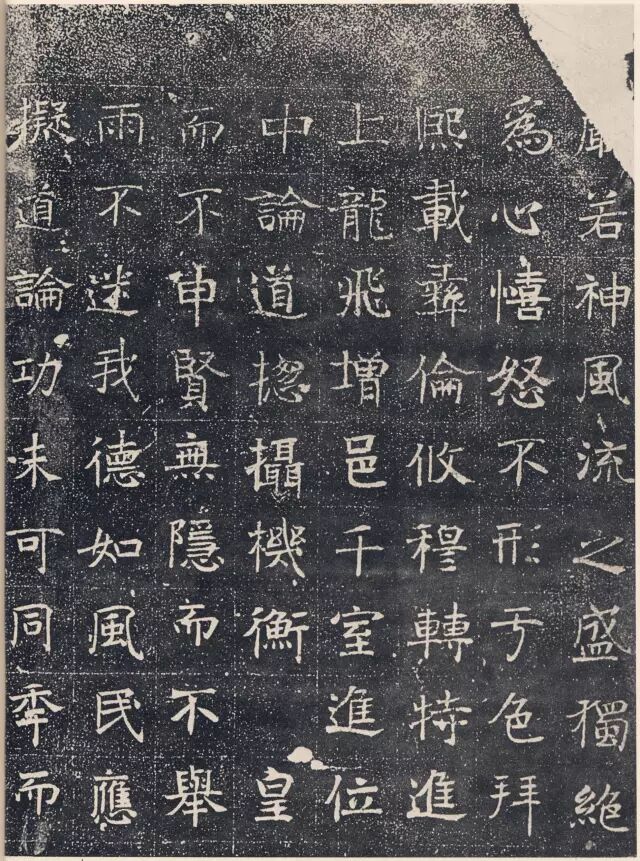 若神風流之盛獨絶
為心憘怒不形于色拜
熙載彞倫攸穆轉特進
上龍飛增邑千室進位
中論道揔攝機衡 皇
而不申賢無隱而不舉
雨不迷我德如風民應
擬追論功未可同秊而